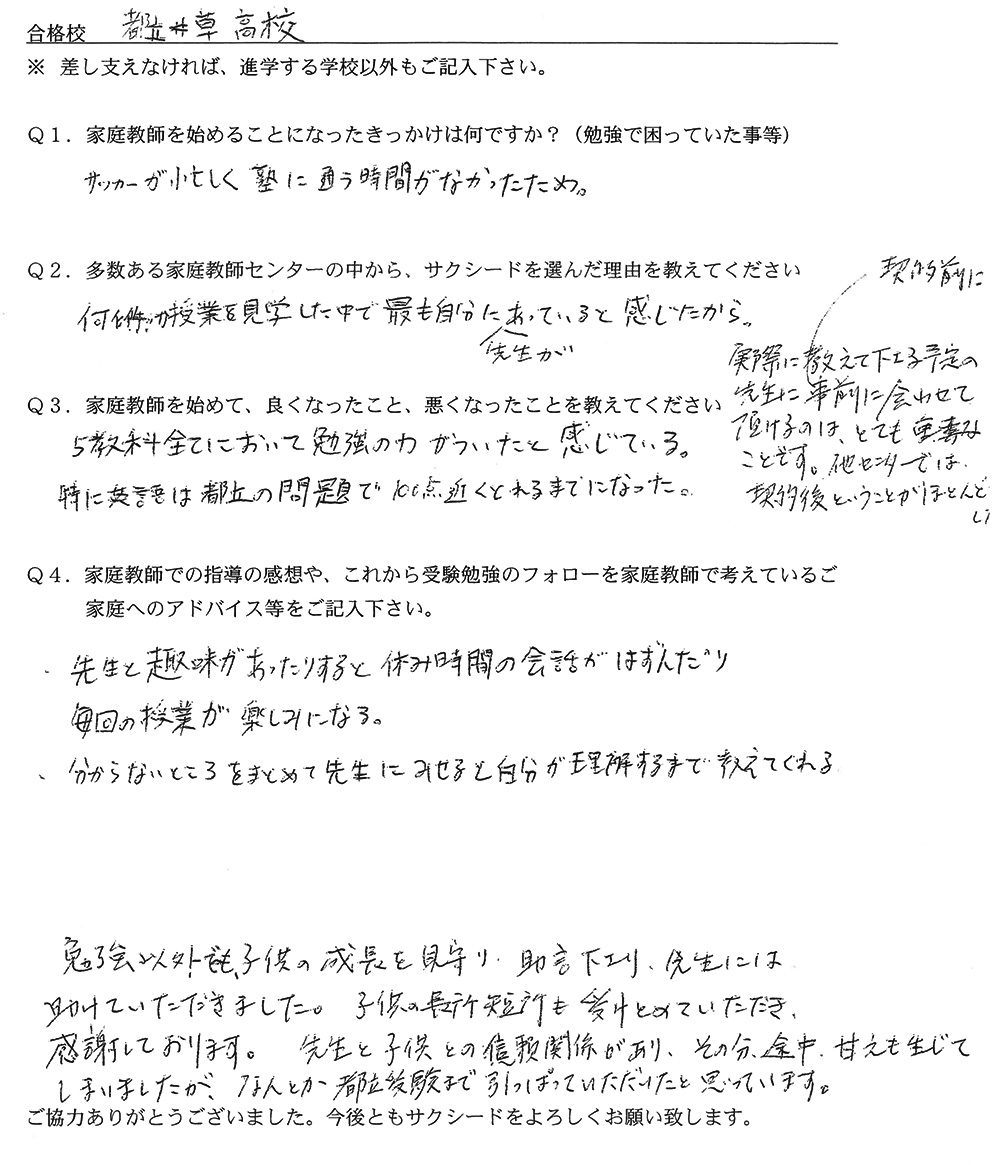 合格校 都立井草高校
※ 差し支えなければ、進学する学校以外もご記入下さい。
Q1．家庭教師を始めることになったきっかけは何ですか？（勉強で困っていた事等）
サッカーが忙しく塾に通う時間がなかったため。
Q2．多数ある家庭教師センターの中から、サクシードを選んだ理由を教えてください
何件か授業を見学した中で最も自分にあっていると感じたから。
先生が
契約前に
実際に教えて下さる予定の
先生に事前に会わせて
頂けるのは、とても重要な
ことです。他センターでは、
契約後ということがほとんど
Q3．家庭教師を始めて、良くなったこと、悪くなったことを教えてください
5教科全てにおいて勉強の力がついたと感じている。
特に英語は都立の問題で100点近くとれるまでになった。
Q4．家庭教師での指導の感想や、これから受験勉強のフォローを家庭教師で考えているご
家庭へのアドバイス等をご記入下さい。
、先生と趣味があったりすると休み時間の会話がはずんだり
毎回の授業が楽しみになる。
、分からないところをまとめて先生にみせると自分が理解するまで教えてくれる
勉強以外でも、子供の成長を見守り、助言下さり、先生には
助けていただきました。子供の長所短所も受けとめていただき、
感謝しております。先生と子供との信頼関係があり、その分、途中、甘えも生じて
しまいましたが、なんとか都立受験まで引っぱっていただいたと思っています。
ご協力ありがとうございました。今後ともサクシードをよろしくお願い致します。